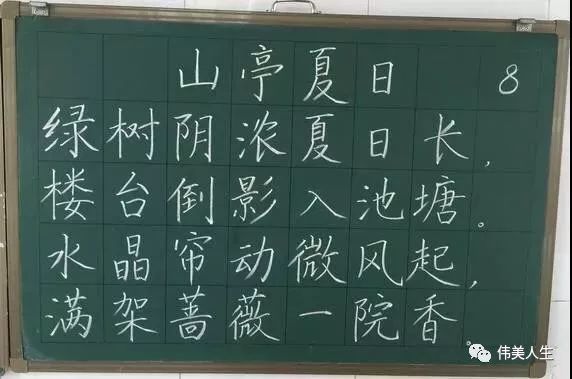 山亭夏日 8
绿树阴浓夏日长,
楼台倒影入池塘。
水晶帘动微风起,
满架蔷薇一院香。
伟美人生